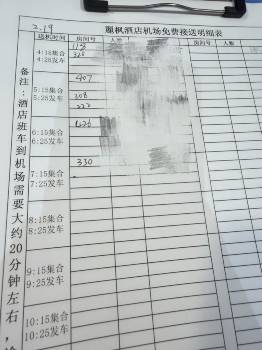 2.19
麗枫酒店机场免费接送明细表
送机时间 房间号 人数 房间号 人数
4:15集合
4:25发车
328
407
5:15集合
5:25发车
308
222
6:15集合
6:25发车
330
7:15集合
7:25发车
8:15集合
8:25发车
9:15集合
9:25发车
10:15集合
10:25发车
备注：酒店班车到机场需要大约20分钟左右，